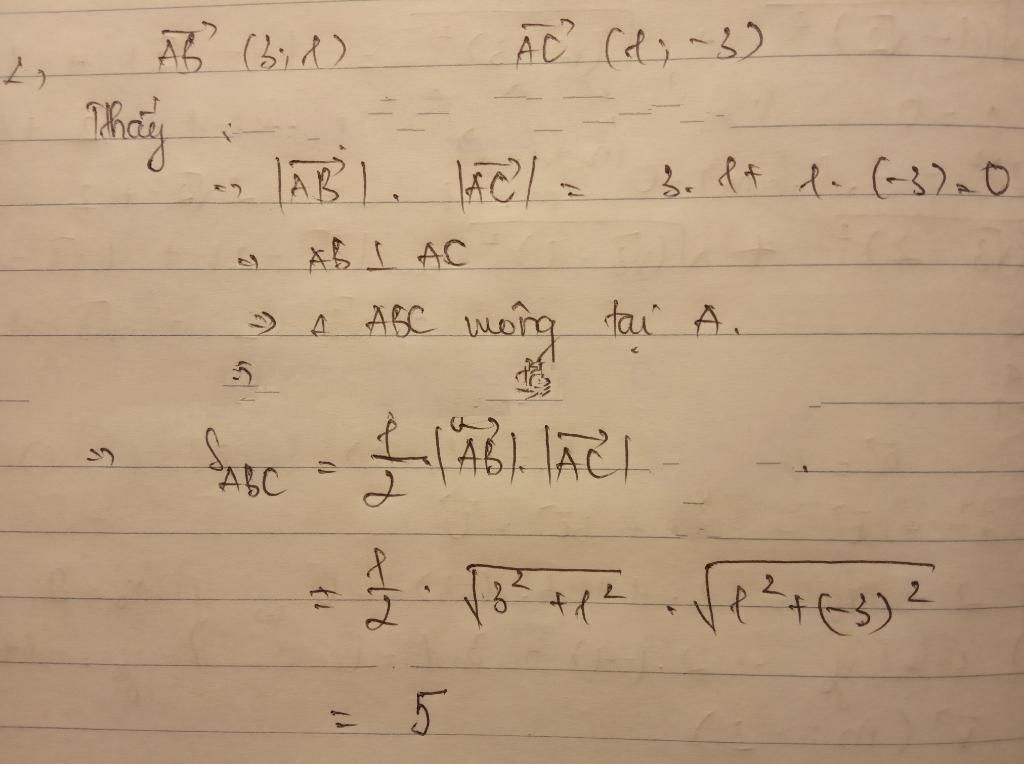 1, $\overrightarrow{AB}$ (3; 1) $\overrightarrow{AC}$ (1; -3)
Thấy :
=> |$\overrightarrow{AB}$| . |$\overrightarrow{AC}$| = 3. 1+ 1. (-3) = 0
=> AB ⊥ AC
=> Δ ABC vuông tại A.
=>
=> S_{ABC} = $\frac{1}{2}$.|$\overrightarrow{AB}$|. |$\overrightarrow{AC}$|
= $\frac{1}{2}$ . $\sqrt{3^2 + 1^2}$ . $\sqrt{1^2 + (-3)^2}$
= 5